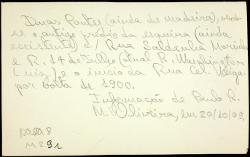 Duas fontes (ainda de madeira), vendo-
se o antigo prédio da esquina (ainda
existente) c/ Rua Saldanha Marinho
e R. 14 de Julho (atual R. Washington
Luis), e o início da Rua Cel. Veiga
por volta de 1900.
Informação de Paulo R.
M. Oliveira, em 20/10/09.
M291